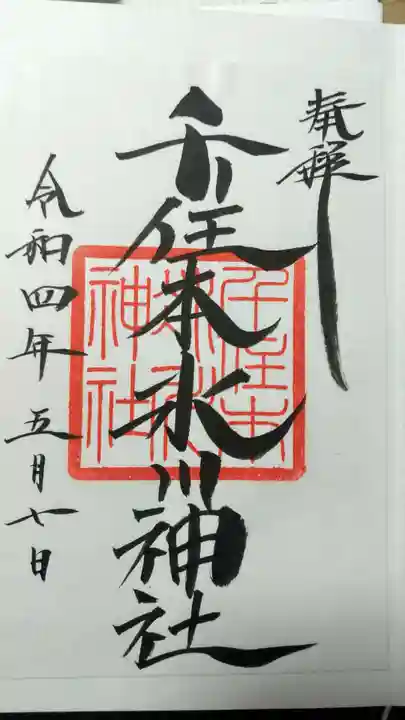 奉拝
千住本氷川神社
千住本
氷川
神社
令和四年五月七日